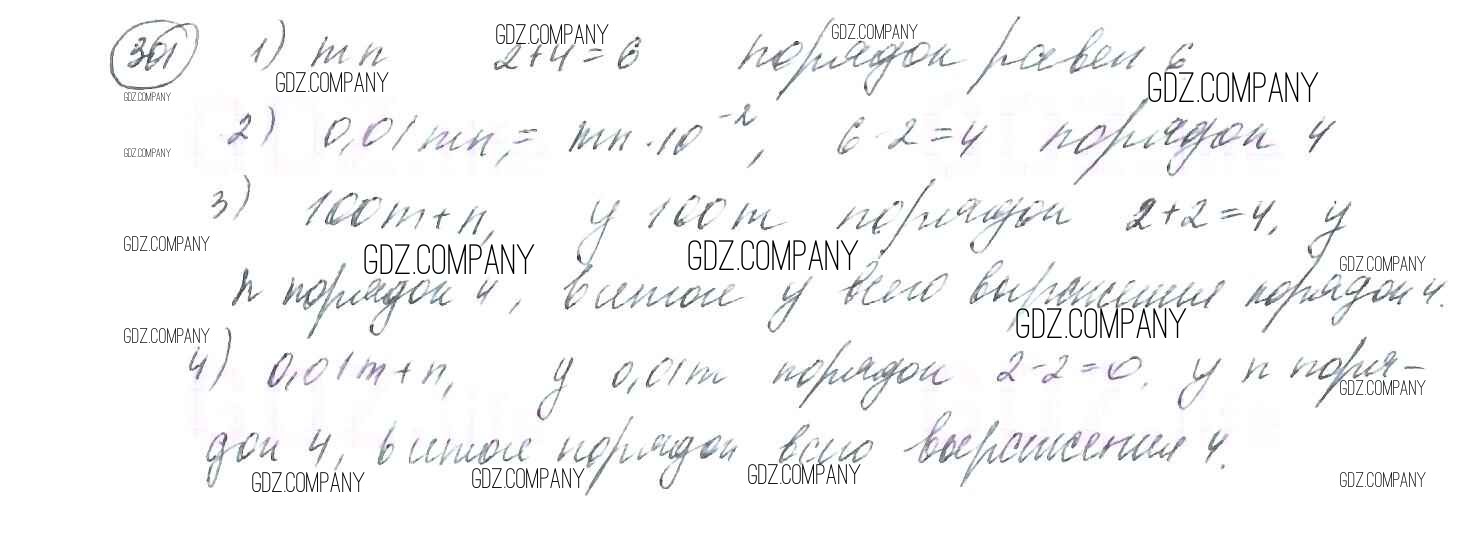 301 1) mn 2+4=6 порядок равен 6
2) 0,01mn, = mn·10⁻², 6-2=4 порядок 4
3) 100m+n, у 100m порядок 2+2=4, у
n порядок 4, в итоге у всего выражения порядок 4.
4) 0,01m+n, у 0,01m порядок 2-2=0. у n поря-
док 4, в итоге порядок всего выражения 4.
GDZ.COMPANY GDZ.COMPANY
GDZ.COMPANY GDZ.COMPANY
GDZ.COMPANY
GDZ.COMPANY
GDZ.COMPANY GDZ.COMPANY GDZ.COMPANY GDZ.COMPANY
GDZ.COMPANY GDZ.COMPANY
GDZ.COMPANY
GDZ.COMPANY GDZ.COMPANY GDZ.COMPANY GDZ.COMPANY